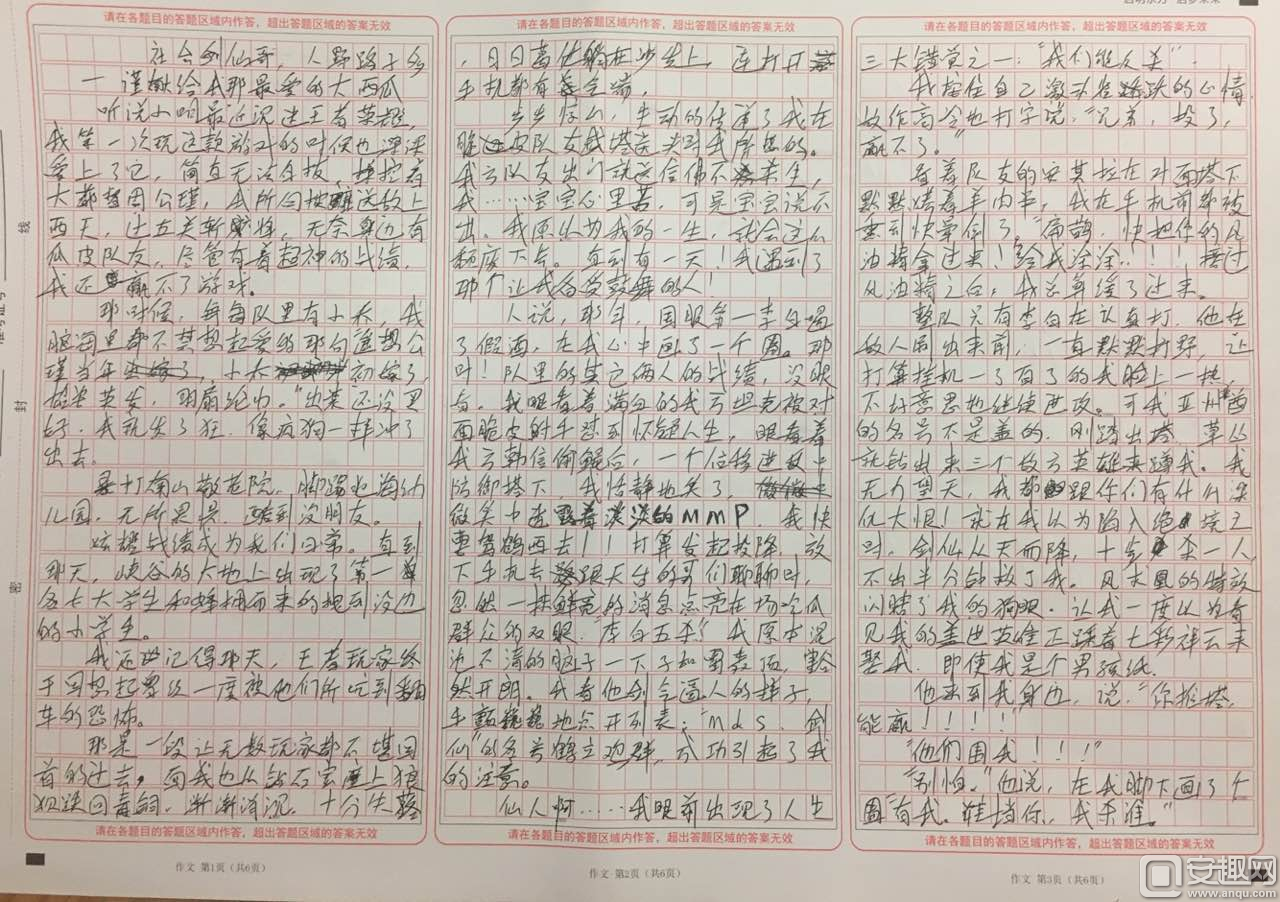 请在各题目的答题区域内作答，超出答题区域的答案无效
社会剑仙哥，人野路子多
一谨献给我那最爱的大西瓜
听说小明最近沉迷王者荣耀，
我第一次玩这款游戏的时候也深深
爱上了它，简直无法自拔，
两天，过五关斩将，无奈身边有
瓜皮队友，尽管有着超神的战绩，
我还赢不了游戏。
那时候，每每队里有小乔，我
脑海里都不禁想起爱的那句遥想公
瑾当年，小乔初嫁了，
雄姿英发，羽扇纶巾。"出来还没思
好，我就发了狂，像疯狗一样冲了
出去。
拳打南山敬老院，脚踢北海幼
儿园，无所畏惧，酷到没朋友。
炫耀战绩成为我们日常。直到
那天，峡谷的大地上出现了第一
名七大学生和蜂拥而来的规到没边
的小学生。
我还记得那天，王者玩家终
于回想起曾经一度被他们所吃到翻
车的恐怖。
那是一段让无数玩家都不堪回
首的过去，而我也从钻石宝座上狼
狈跌回青铜，渐渐消沉，十分失落
请在各题目的答题区域内作答，超出答题区域的答案无效
作文 第1页（共6页）
请在各题目的答题区域内作答，超出答题区域的答案无效
，日日离他躺在沙发上，连打开
手机都有气无力，
步步惊心，生动的传达了我在
我方队友出门就送信佛不杀生，
我……宝宝心里苦，可是宝宝说不
出。我原以为我的一生，就会这么
颓废下去。直到有一天！我遇到了
那个让我备受鼓舞的人！
人说，那年，国服第一李白喝
了假酒，在我心中画了一个圈。那
时！队里的其它俩人的战绩，没眼
看。我眼看着满分的我方坦克被对
面脆皮射手怼到怀疑人生，眼看着
我方韩信偷鲲后，一个位移进敌
防御塔下，我恬静地笑了，
微笑中透露着淡淡的MMP，我快
要驾鹤西去！！打算发起投降，放
下手机去跟天生的哥们聊聊时，
忽然一抹鲜亮的消息点亮在场吃瓜
群众的双眼，"李白五杀！"我原本混
沌不清的脑子一下子如雷轰顶，豁
然开朗。我看他剑气逼人的样子，
手颤巍巍地点开列表："mds 剑
仙"的名号鹤立鸡群，成功引起了我
的注意。
仙人啊……我眼前出现了人生
请在各题目的答题区域内作答，超出答题区域的答案无效
作文 第2页（共6页）
请在各题目的答题区域内作答，超出答题区域的答案无效
三大错觉之一："我们能反杀"
我按住自己激动雀跃的心情，
故作高冷地打字说，"兄弟，投了，
赢不了。"
看着队友的安其拉在对面塔下
默默烤着羊肉串，我在手机前都被
熏到快晕倒了。"扁鹊，快把你的风
油精拿过来！给我涂涂！！！"接过
风油精之后，我总算缓了过来。
整队只有李白在认真打，他在
敌人刷出来前，一直默默打野，让
打算挂机一了百了的我脸上一热，
不好意思地继续进攻。可我亚洲酋
的名号不是盖的，刚踏出塔，草丛
就钻出来三个敌方英雄来蹲我。我
无力望天，我都跟你们有什么深
仇大恨！就在我以为陷入绝境之
时，剑仙从天而降，十步杀一人，
不出半分钟救了我。风大的特效
闪瞎了我的狗眼，让我一度以为看
见我的盖世英雄正踩着七彩祥云来
娶我，即使我是个男孩纸。
他来到我身边，说："你推塔，
能赢！！！！"
"他们围我！！！"
"别怕。"他说，在我脚下画了个
圈"有我。谁挡你，我杀谁。"
请在各题目的答题区域内作答，超出答题区域的答案无效
作文 第3页（共6页）
线
封
密
安趣网
www.anqu.com